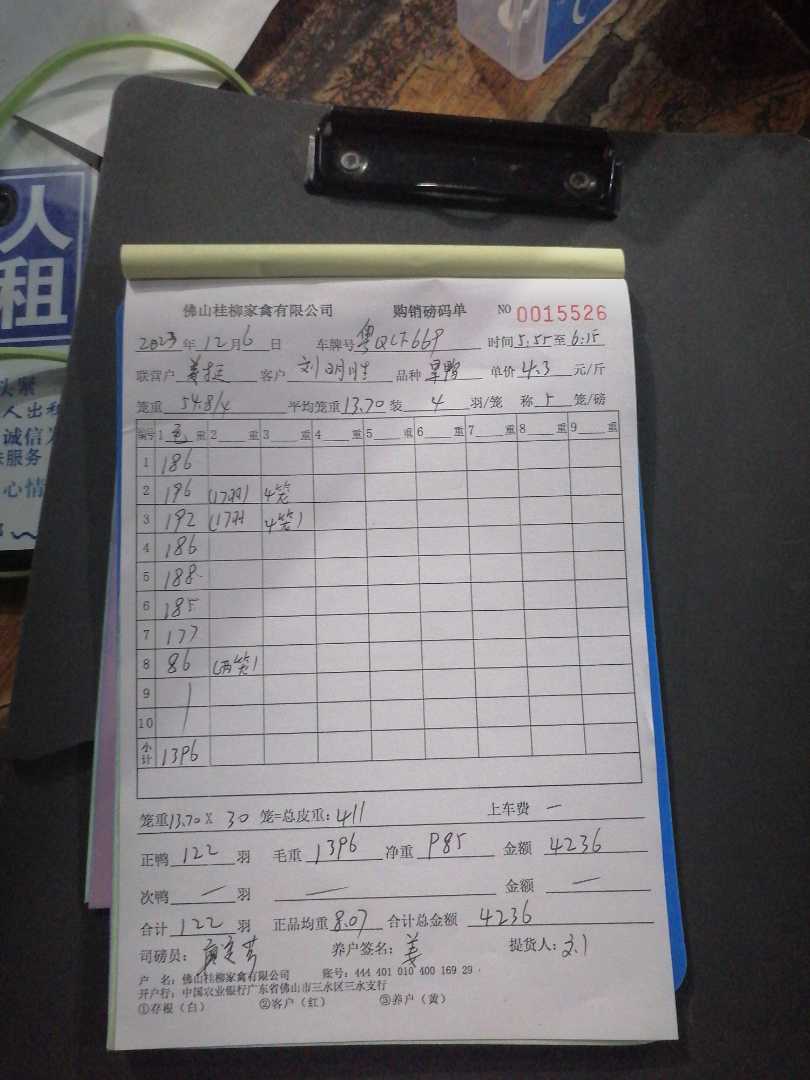 人
租
头紧
人出租
诚信为
服务
心情
佛山桂柳家禽有限公司 购销磅码单 NO 0015526
2023年12月6日 车牌号粤QLT669 时间5:55至6:15
联营户 客户 刘明胜 品种 单价4.3元/斤
笼重54.8/4 平均笼重13.70 装4羽/笼 称5笼/磅
编号 1 重 2 重 3 重 4 重 5 重 6 重 7 重 8 重 9 重
1 186
2 196 (17羽) 4笼
3 192 (17羽 4笼)
4 186
5 188
6 185
7 177
8 86 (两笼)
9
10
小计 1396
笼重13.70 X 30 笼=总皮重:411 上车费 一
正鸭122羽 毛重1396 净重985 金额4236
次鸭 一 羽 一 金额 一
合计122羽 正品均重8.07 合计总金额4236
司磅员: 养户签名:姜 提货人:
户 名:佛山桂柳家禽有限公司 账号:444 401 010 400 169 29
开户行:中国农业银行广东省佛山市三水区三水支行
①存根(白) ②客户(红) ③养户(黄)